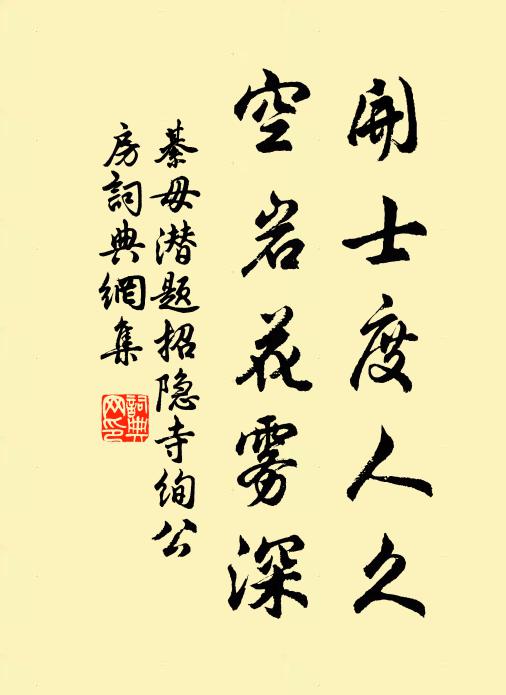 开士度人久
空岩花雾深
綦毋潜题招隐寺绚公
房詞典網集
詞典网印